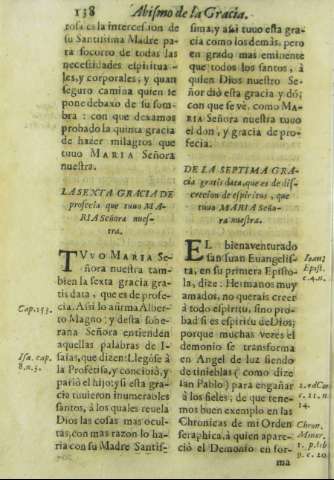 138 Abismo de la Gracia.
rosa es la intercesion de
su Santissima Madre pa-
ra socorro de todas las
necesidades espiritua-
les, y corporales; y quan
seguro camina quien se
pone debaxo de su som-
bra: con que dexamos
probado la quinta gracia
de hazer milagros que
tuvo MARIA Señora
nuestra.
LA SEXTA GRACIA DE
profecia que tuvo MA-
RIA Señora nues-
tra.
TVvo MARIA Se-
ñora nuestra tam-
bien la sexta gracia gra-
tis data, que es de profe-
cia. Assi lo afirma Alber-
to Magno; y desta sobe-
rana Señora entienden
aquellas palabras de I-
saias, que dizen: Lleguse à
la Profetisa, y conciviò, y
pariò el hijo; si esta gra-
cia tuvieron inumerables
santos, à los quales revela
Dios las cosas mas ocul-
tas, con mas razon lo ha-
ria con su Madre Santis-
Cap. 153.
Isa. cap.
8. n. 3.
sima, y assi tuvo esta gra-
cia como los demàs, pero
en grado mas eminente
que todos los santos, à
quien Dios nuestro Se-
ñor diò esta gracia y dõ;
con que se vè, como MA-
RIA Señora nuestra tuvo
el don, y gracia de pro-
fecia.
DE LA SEPTIMA GRA-
cia gratis data, que es de dis-
crecion de espiritus, que
tuvo MARIA Seño-
ra nuestra.
EL bienaventurado
san Iuan Euangelis-
ta, en su primera Episto-
la, dize: Hermanos muy
amados, no querais creer
à todo espiritu, sino pro-
bad si es espiritu de Dios;
porque muchas verès el
demonio se transforma
en Angel de luz siendo
de tinieblas (como dize
san Pablo) para engañar
à los fieles; de que tene-
mos buen exemplo en las
Chronicas de mi Orden
seraphica, à quien apare-
ciò el Demonio en for-
ma
Ioan.
Epist.
c. 4. n.
2. ad Cor.
c. 11. n.
14.
Chron.
Minor.
1. p. lib
9. c. 20